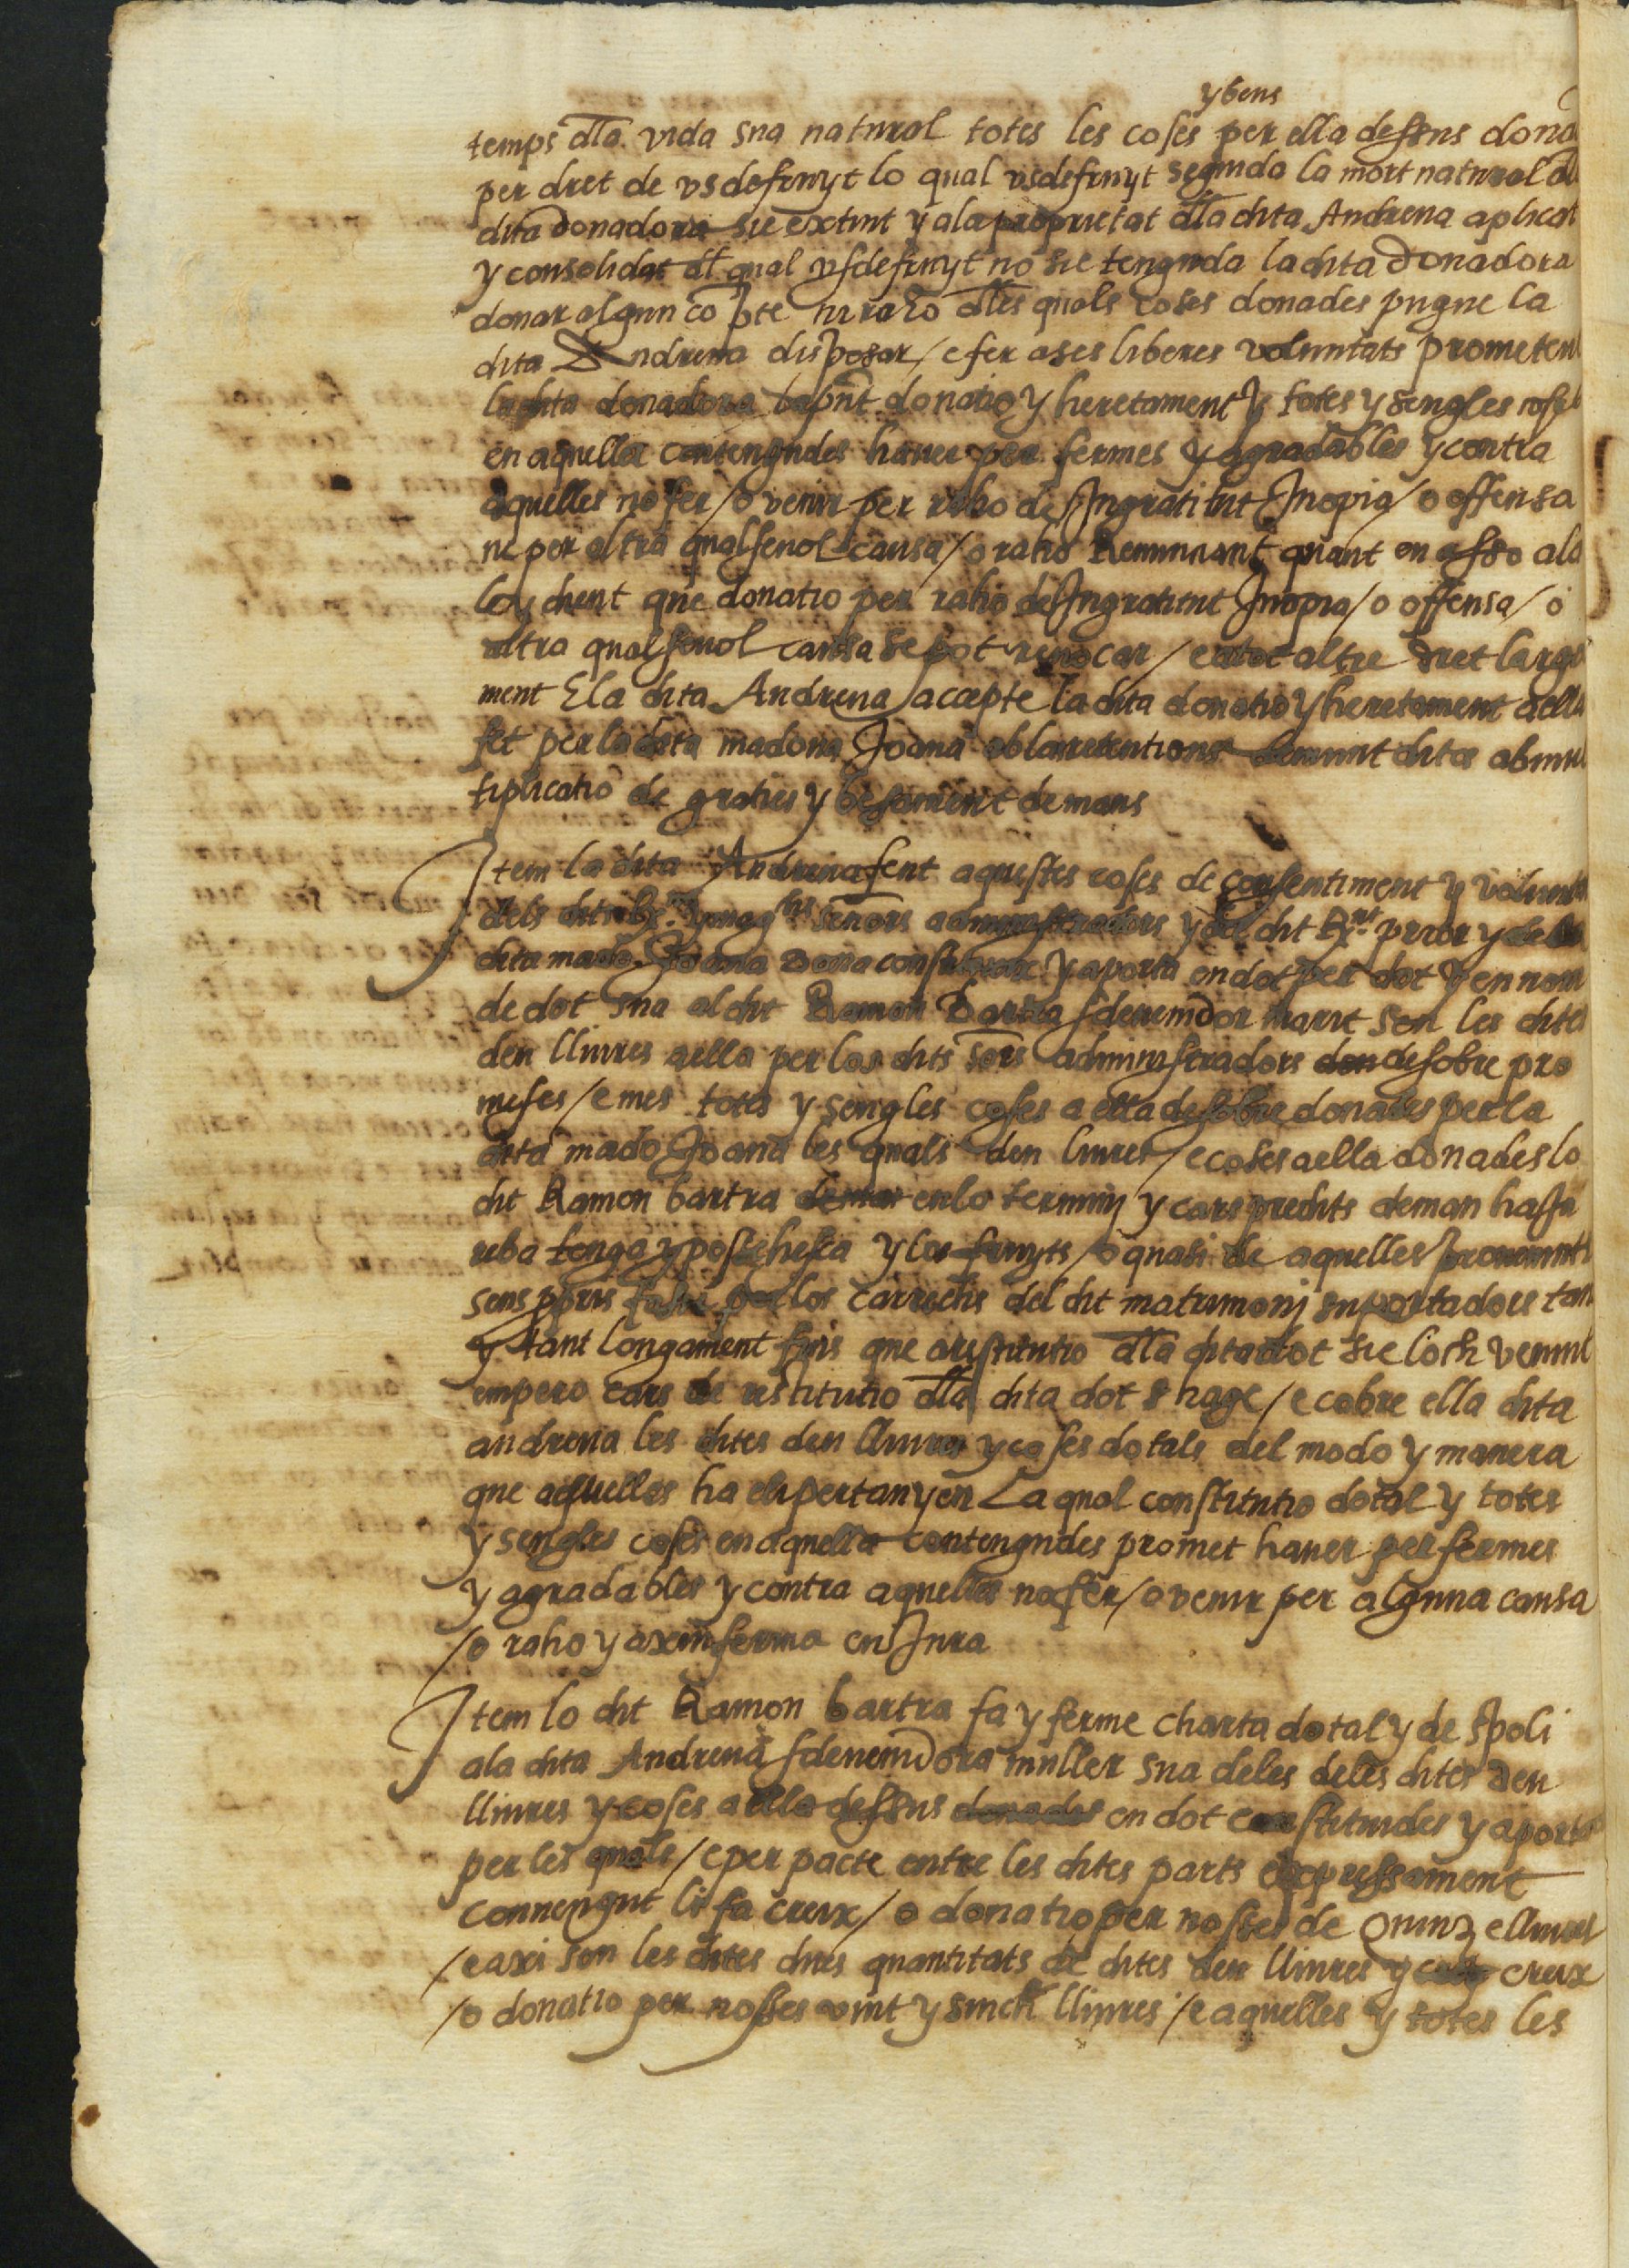 y bens
temps dla vida sua natural totes les coses per ella dessus dona
per dret de usdefruyt lo qual usdefruyt seguida la mort natural dl
dita donadora sie extint y a la proprietat dla dita Andreua aplicat
y consolidat dl qual usdefruyt no sie tenguda la dita donadora
donar algun cõpte ni raho dles quals coses donades pugue la
dita Andreua disposar / e fer a ses liberes voluntats prometen
la dita donadora la pñt donatio y heretament y totes y sengles coses
en aquella contengudes haver per fermes y agradables y contra
aquelles no fer / o venir per raho de Ingratitut Inopia / o offensa
ne per altra qualsevol causa / o ratio Renunciant quant en asso a la
ley dient que donatio per raho de Ingratitut Inopia / o offensa / o
altra qualsevol causa se pot revocar / e a tot altre dret larga
ment E la dita Andreua accepte la dita donatio y heretament a ella
fet per la dita madona Joana ab la retentions demunt dita ab mul
tiplicatio de graties y besament de mans
Item la dita Andreua fent aquestes coses de consentiment y volunta
dels dits Rx.ᵗ y magᶜʰˢ señors administradors y del dit Rⁿᵗ prior y de la
dita mado Joana Dona constitueix y aporta en dot per dot y en nom
de dot sua al dit Ramon Bartra sdevenidor marit seu les dites
deu lliures a ella per los dits sors administradors desobre pro
meses / e mes totes y sengles coses a ella desobre donades per la
dita mado Joana les quals deu liures / e coses a ella donades lo
dit Ramon bartra en lo termini y cars predits deman hassa
reba tenga y possehesca y los fruyts / o quasi de aquelles provinints
sens ppris fasse per los carrechs del dit matrimonj suportadors tan
y tant longament fins que a restitutio dla dita dot sie loch venint
empero cars de restitutio dla dita dot hage / e cobre ella dita
andreua les dites deu lliures y coses dotals del modo y manera
que aquelles ha eli pertanyen La qual constitutio dotal y totes
y sengles coses en aquella contengudes promet haver per fermes
y agradables y contra aquelles no fer / o venir per alguna causa
/ o raho y axi u ferma en Jura
Item lo dit Ramon bartra fa y ferme charta dotal y de spoli
a la dita Andreua sdevenidora muller sua deles deles dites deu
lliures y coses a ella dessus en dot constituides y aporta
per les quals / e per pacte entre les dites parts expressament
convengut li fa creix / o donatio per nosses de quinze lliures
/ e axi son les dites dues quantitats de dites deu lliures y creix
/ o donatio per nosses vint y sinch lliures / e aquelles y totes les